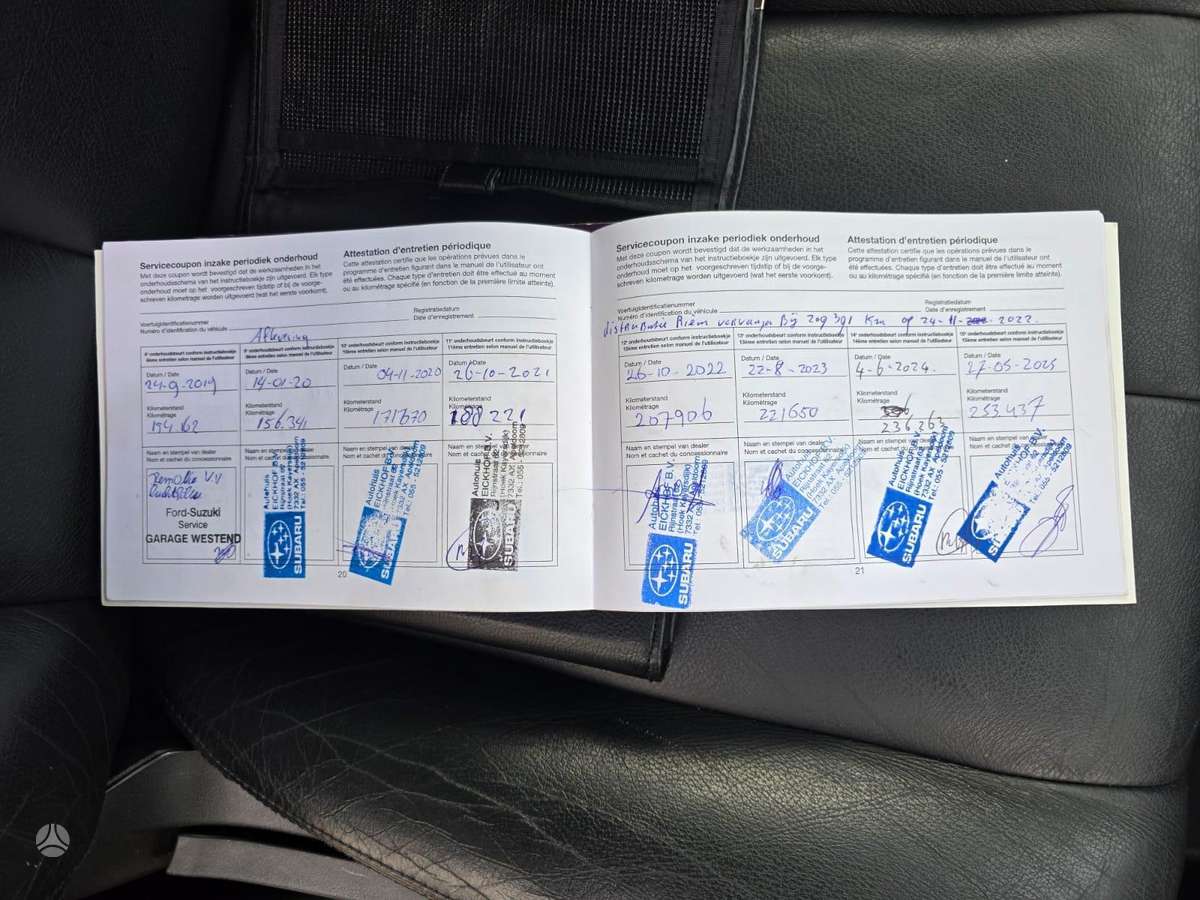 Servicecoupon inzake periodiek onderhoud
Met deze coupon wordt bevestigd dat de werkzaamheden in het
onderhoudsschema van het instructieboekje zijn uitgevoerd. Elk type
onderhoud moet op het voorgeschreven tijdstip of bij de voorge-
schreven kilometrage worden uitgevoerd (wat het eerste voorkomt).
Attestation d'entretien périodique
Cette attestation certifie que les opérations prévues dans le
programme d'entretien figurant dans le manuel de l'utilisateur ont
été effectuées. Chaque type d'entretien doit être effectué au moment
ou au kilométrage spécifié (en fonction de la première limite atteinte).
Voertuigidentificatienummer
Numéro d'identification du véhicule
Registratiedatum
Date d'enregistrement
Aflevering
9e onderhoudsbeurt conform instructieboekje
10e onderhoudsbeurt conform instructieboekje
11e onderhoudsbeurt conform instructieboekje
Datum / Date
24-9-2019
Datum / Date
14-01-20
Datum / Date
04-11-2020
Datum / Date
26-10-2021
Kilometerstand
Kilométrage
Kilometerstand
Kilométrage
156.341
Kilometerstand
Kilométrage
171670
Kilometerstand
Kilométrage
188221
Naam en stempel van dealer
Nom et cachet du concessionnaire
Naam en stempel van dealer
Nom et cachet du concessionnaire
Naam en stempel van dealer
Nom et cachet du concessionnaire
Naam en stempel van dealer
Nom et cachet du concessionnaire
Remolie V.V
Ford-Suzuki
Service
GARAGE WESTEND
Autohuis
EICKHOF B.V.
Rijnstraat 60
(Hoek Kayersdijk)
7332 AX Apeldoorn
Tel.: 055 - 5212809
SUBARU
Autohuis
EICKHOF B.V.
SUBARU
Autohuis
EICKHOF B.V.
Rijnstraat 60
(Hoek Kayersdijk)
7332 AX Apeldoorn
Tel.: 055 - 5212809
SUBARU
20
Servicecoupon inzake periodiek onderhoud
Met deze coupon wordt bevestigd dat de werkzaamheden in het
onderhoudsschema van het instructieboekje zijn uitgevoerd. Elk type
onderhoud moet op het voorgeschreven tijdstip of bij de voorge-
schreven kilometrage worden uitgevoerd (wat het eerste voorkomt).
Attestation d'entretien périodique
Cette attestation certifie que les opérations prévues dans le
programme d'entretien figurant dans le manuel de l'utilisateur ont
été effectuées. Chaque type d'entretien doit être effectué au moment
ou au kilométrage spécifié (en fonction de la première limite atteinte).
Voertuigidentificatienummer
Numéro d'identification du véhicule
Registratiedatum
Date d'enregistrement
Riem vervangen Bij 209391 Km op 24-11-2022.
12e onderhoudsbeurt conform instructieboekje
13e onderhoudsbeurt conform instructieboekje
14e onderhoudsbeurt conform instructieboekje
15e onderhoudsbeurt conform instructieboekje
Datum / Date
26-10-2022
Datum / Date
22-8-2023
Datum / Date
4-6-2024
Datum / Date
27-05-2025
Kilometerstand
Kilométrage
207906
Kilometerstand
Kilométrage
221650
Kilometerstand
Kilométrage
236,263
Kilometerstand
Kilométrage
253437
Naam en stempel van dealer
Nom et cachet du concessionnaire
Naam en stempel van dealer
Nom et cachet du concessionnaire
Naam en stempel van dealer
Nom et cachet du concessionnaire
Naam en stempel van dealer
Nom et cachet du concessionnaire
Autohuis
EICKHOF B.V.
Rijnstraat 60
(Hoek Kayersdijk)
SUBARU
SUBARU
Autohuis
EICKHOF B.V.
SUBARU
21